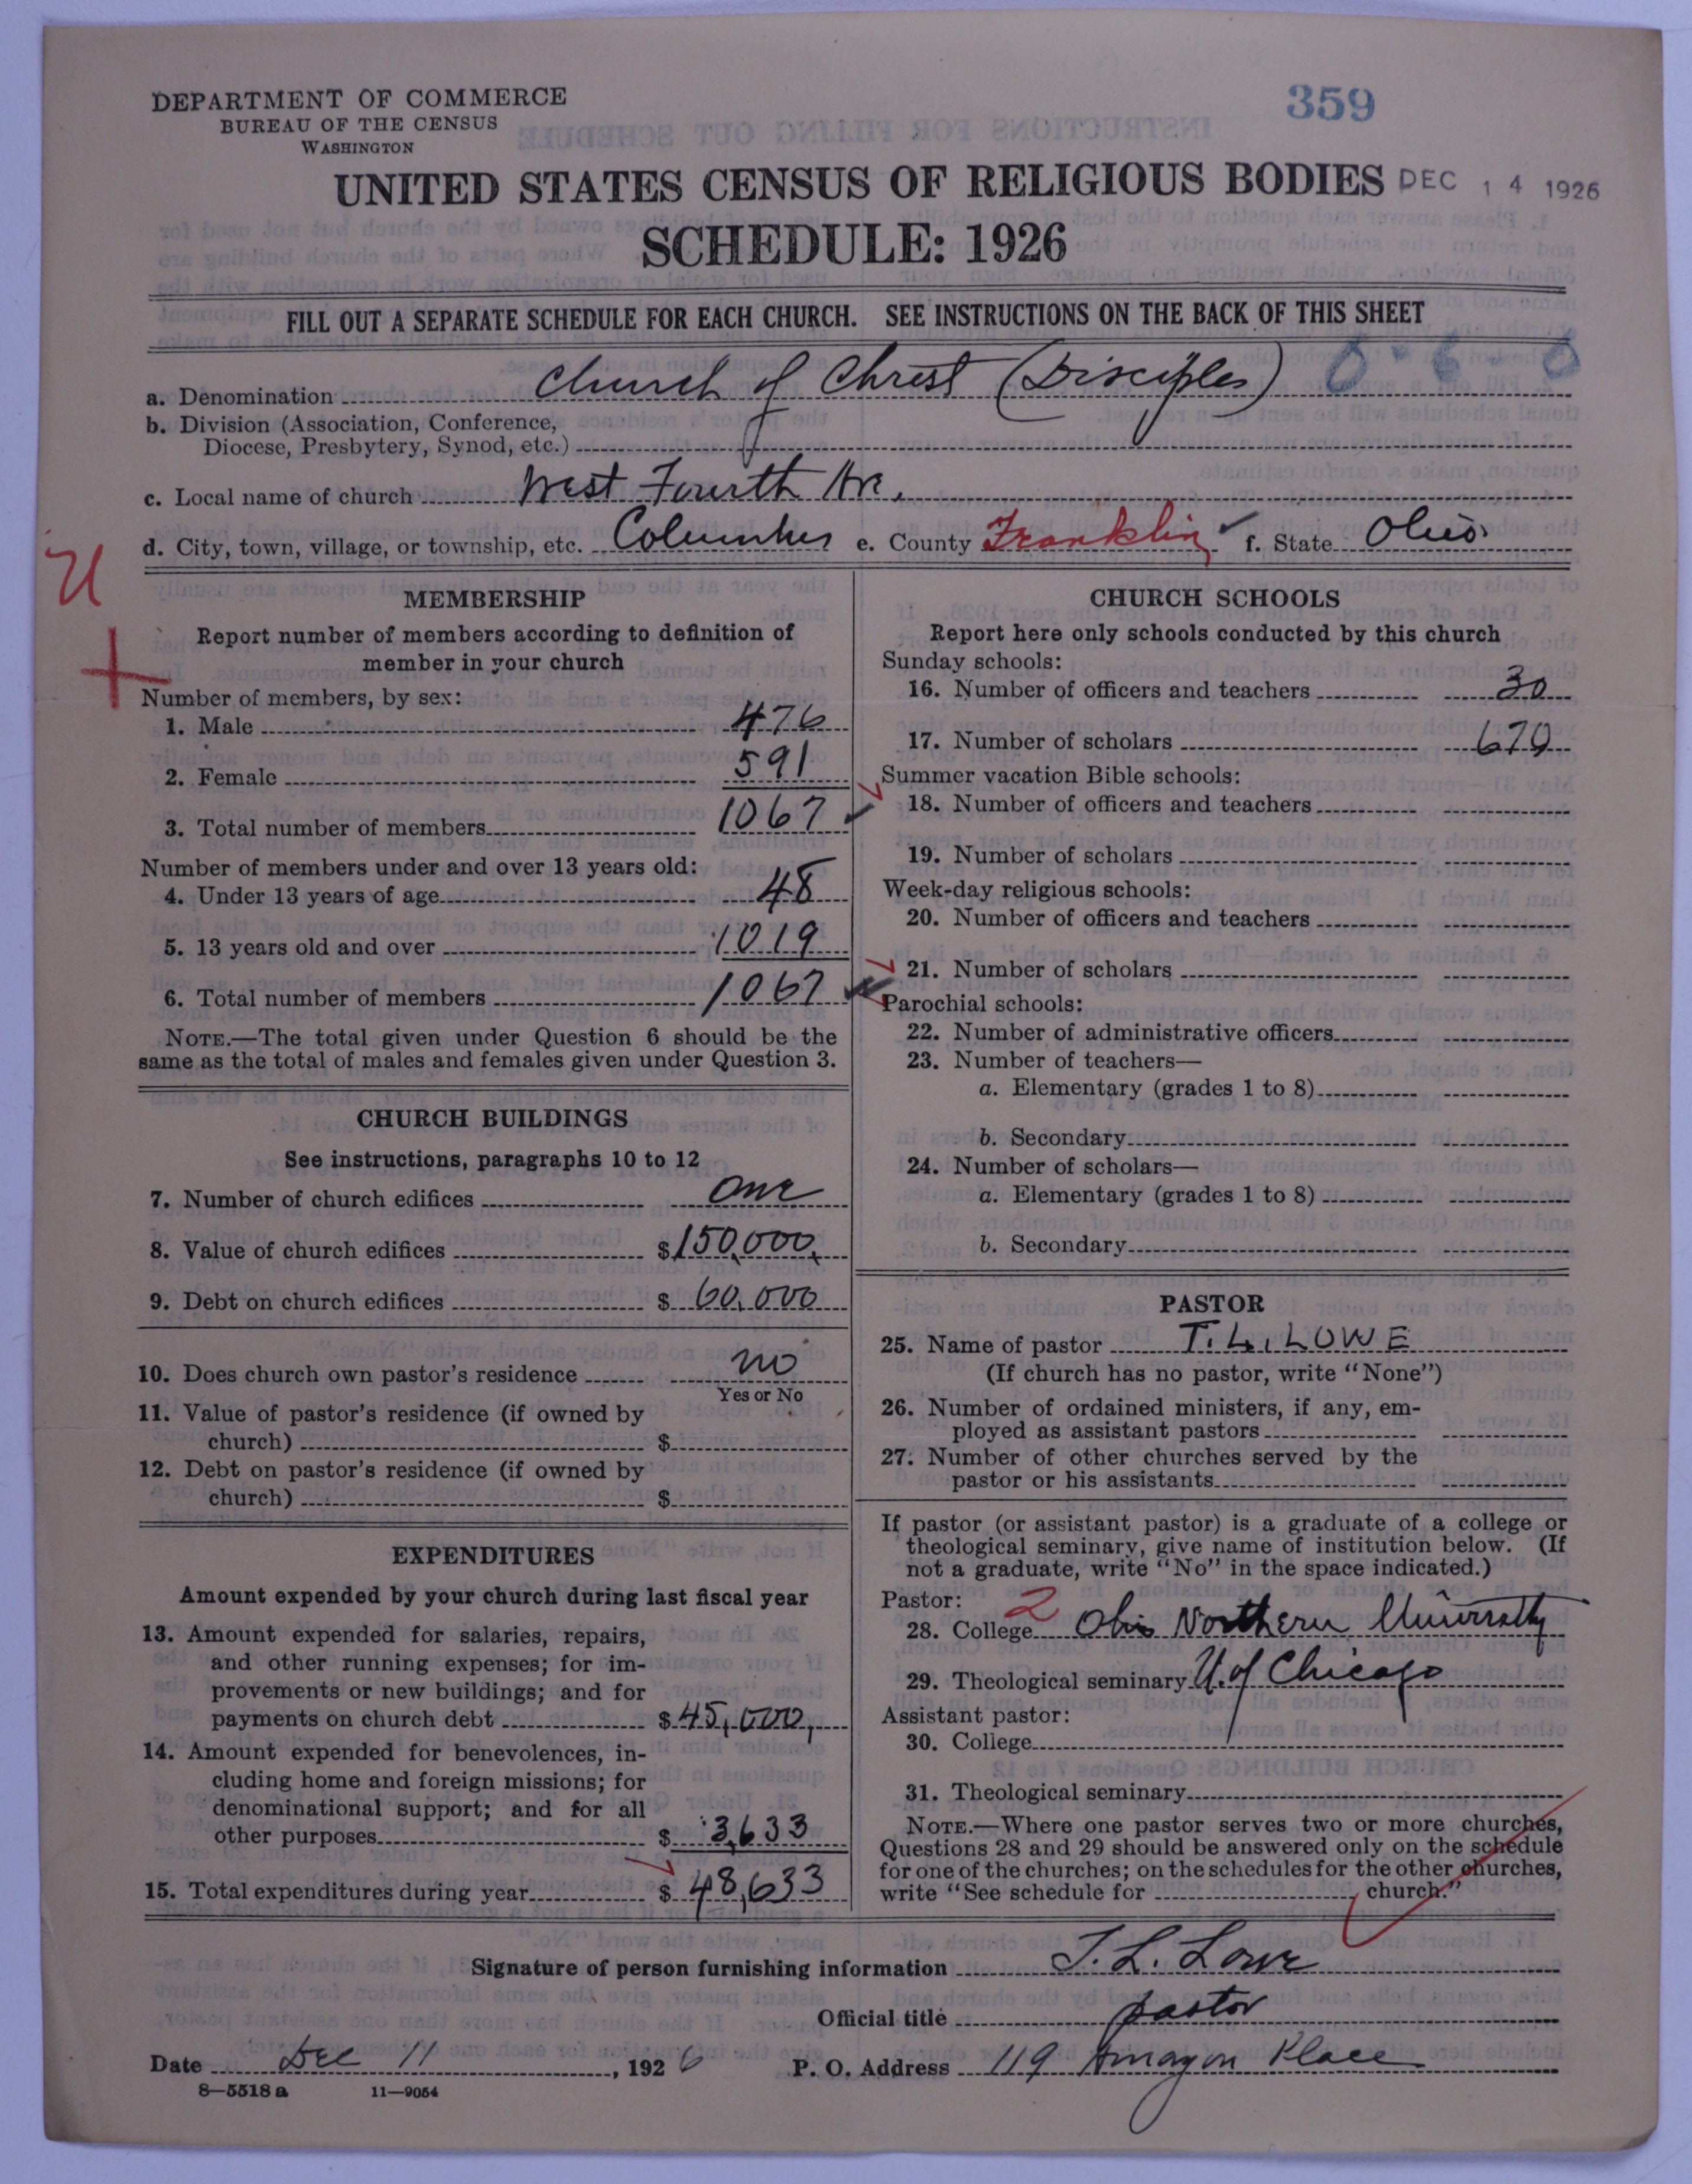 359
DEPARTMENT OF COMMERCE
BUREAU OF THE CENSUS
WASHINGTON
UNITED STATES CENSUS OF RELIGIOUS BODIES DEC 14 1926
SCHEDULE: 1926
FILL OUT A SEPARATE SCHEDULE FOR EACH CHURCH. SEE INSTRUCTIONS ON THE BACK OF THIS SHEET
a. Denomination Church of Christ (Disciples) 0-6-0
b. Division (Association, Conference,
Diocese, Presbytery, Synod, etc.)
c. Local name of church West Fourth Ave.
d. City, town, village, or township, etc. Columbus e. County Franklin f. State Ohio
MEMBERSHIP
Report number of members according to definition of
member in your church
Number of members, by sex:
1. Male 476
2. Female 591
3. Total number of members 1067
Number of members under and over 13 years old:
4. Under 13 years of age 48
5. 13 years old and over 1019
6. Total number of members 1067
NOTE.—The total given under Question 6 should be the
same as the total of males and females given under Question 3.
CHURCH BUILDINGS
See instructions, paragraphs 10 to 12
7. Number of church edifices One
8. Value of church edifices $150,000,
9. Debt on church edifices $ 60,000
10. Does church own pastor's residence no
Yes or No
11. Value of pastor's residence (if owned by
church) $
12. Debt on pastor's residence (if owned by
church) $
EXPENDITURES
Amount expended by your church during last fiscal year
13. Amount expended for salaries, repairs,
and other running expenses; for im-
provements or new buildings; and for
payments on church debt $ 45,000,
14. Amount expended for benevolences, in-
cluding home and foreign missions; for
denominational support; and for all
other purposes $ 3,633
15. Total expenditures during year $ 48,633
CHURCH SCHOOLS
Report here only schools conducted by this church
Sunday schools:
16. Number of officers and teachers 30
17. Number of scholars 670
Summer vacation Bible schools:
18. Number of officers and teachers
19. Number of scholars
Week-day religious schools:
20. Number of officers and teachers
21. Number of scholars
Parochial schools:
22. Number of administrative officers
23. Number of teachers—
a. Elementary (grades 1 to 8)
b. Secondary
24. Number of scholars—
a. Elementary (grades 1 to 8)
b. Secondary
PASTOR
25. Name of pastor T. L. LOWE
(If church has no pastor, write "None")
26. Number of ordained ministers, if any, em-
ployed as assistant pastors
27. Number of other churches served by the
pastor or his assistants
If pastor (or assistant pastor) is a graduate of a college or
theological seminary, give name of institution below. (If
not a graduate, write "No" in the space indicated.)
Pastor: 2
28. College Ohio Northern University
29. Theological seminary U. of Chicago
Assistant pastor:
30. College
31. Theological seminary
NOTE.—Where one pastor serves two or more churches,
Questions 28 and 29 should be answered only on the schedule
for one of the churches; on the schedules for the other churches,
write "See schedule for church."
Signature of person furnishing information T. L. Lowe
Official title pastor
Date Dec 11, 1926 P. O. Address 119 Amazon Place
8—5518a 11—9054